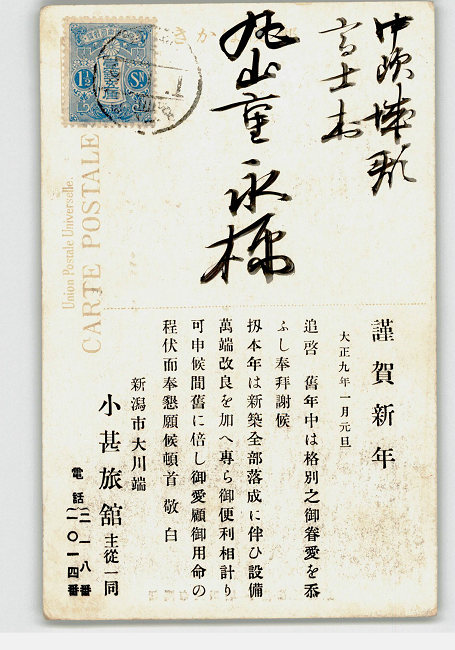 きかは
中頸城郡
高士村
丸山重永様
Union Postale Universelle.
CARTE POSTALE
1½ Sn
謹賀新年
大正九年一月元旦
追啓 舊年中は格別之御眷愛を忝
ふし奉拜謝候
扨本年は新築全部落成に伴ひ設備
萬端改良を加へ專ら御便利相計り
可申候間舊に倍し御愛顧御用命の
程伏而奉懇願候頓首 敬白
新潟市大川端
小甚旅舘 主從一同
電話 二一八番
二〇一四番